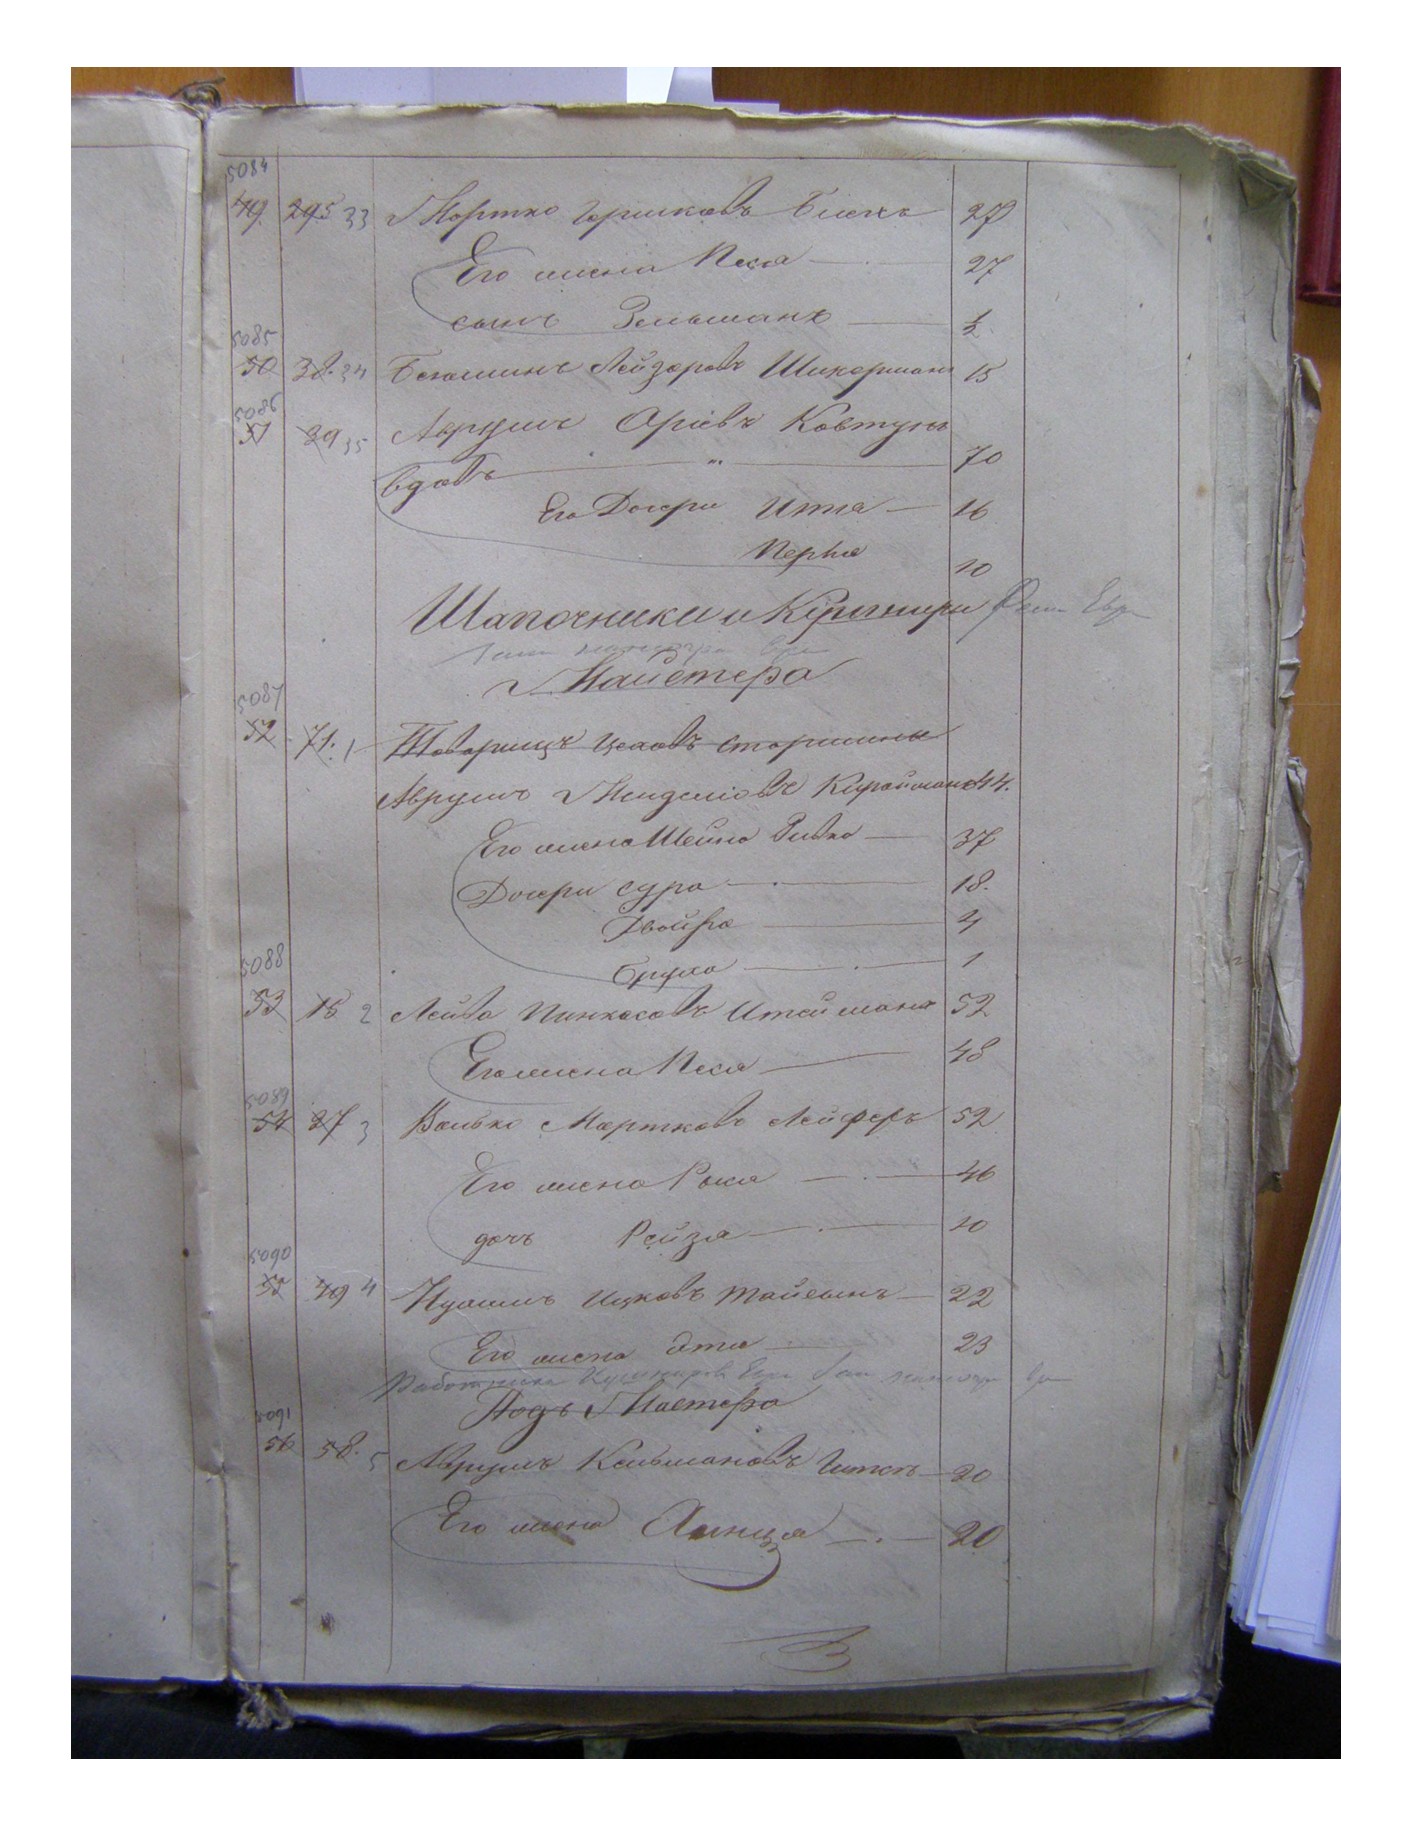 5084
49. 295 33 Мортко Гершковъ Бленъ 27
Его жена Песя 27
сынъ Зельманъ ½
5085
50 38. 34 Бенюминъ Лейзоровъ Шихерманъ 15
5086
51 39 35 Аврумъ Оріевъ Ковтунъ
вдовъ " 70
Его Дочери Итта 16
Перля 10
Шапочники и Кушниры
Майстера
5087
52 71. 1 Товарищъ цеховъ старшины
Аврумъ Менделіовъ Курайманъ 44.
Его жена Шейна Ривка 37
Дочери Сура 18.
Двойра 4
Бруха 1
5088
53 15 2 Лейба Пинкасовъ Штейманъ 52
Его жена Песя 48
5089
54 27 3 Волько Мортковъ Лейферъ 52
Его жена Рыся 46
дочь Рейзя 10
5090
55 49 4 Нухимъ Ицковъ Майсынъ 22
Его жена Эта 23
Подъ Мастера
5091
56 58. 5 Аврумъ Кельмановъ 20
Его жена Хинця 20